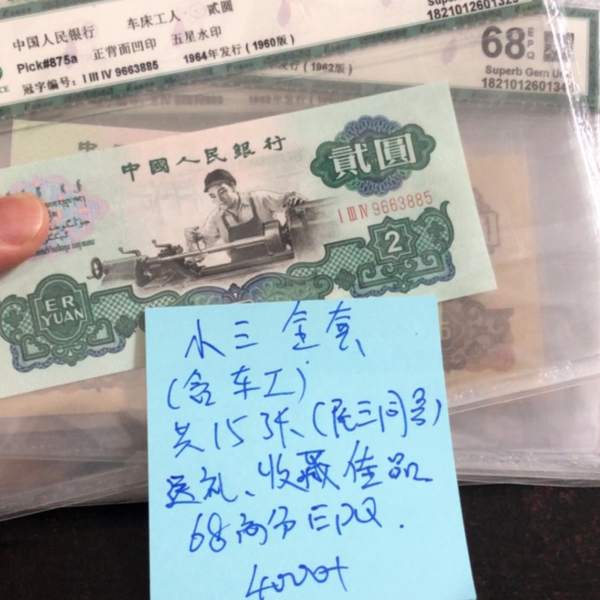 中国人民银行 车床工人 贰圆
Pick#875a 正背面凹印 五星水印
冠字编号: I III IV 9663885 1964年发行(1960版)
1821012601
68 EPQ
Superb Gem Un
182101260134
发行(1962版)
中國人民銀行
貳圓
I III IV 9663885
2
ER
YUAN
小三全套
(含车工)
共15张、(尾三同号)
送礼、收藏佳品
68高分EPQ.
4000+